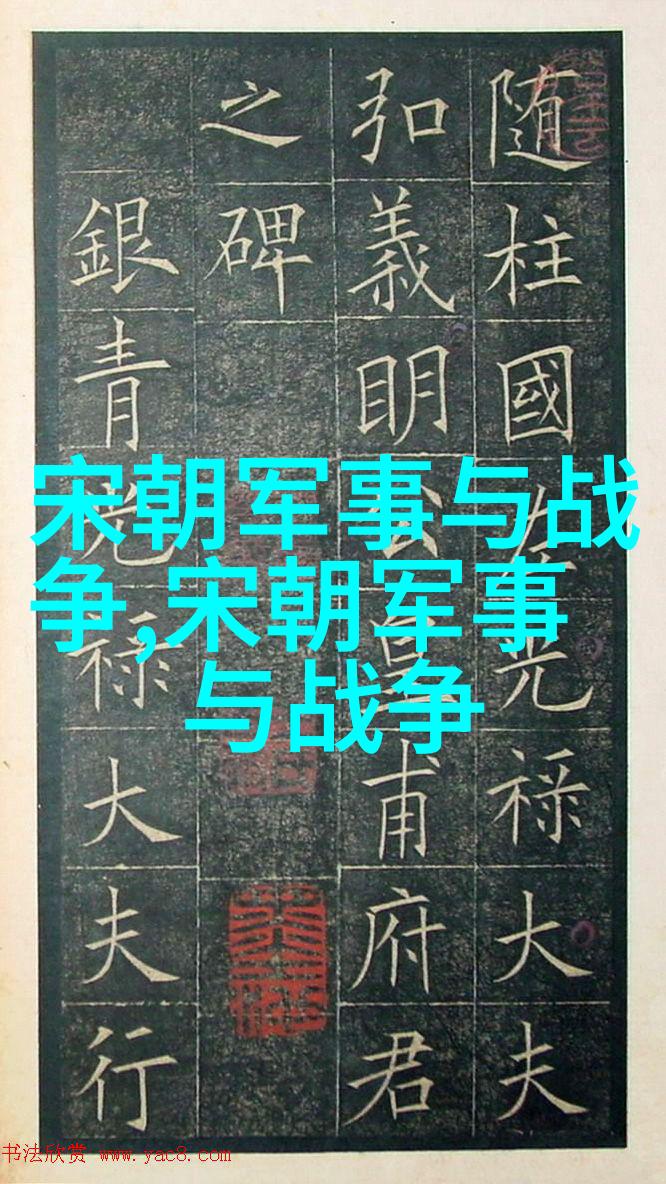 随柱國左光禄大夫
弘義眀公皇甫府君
之碑
銀青光禄大夫行
宋朝军事与战
争,宋朝军事
与战争
书法欣赏 www.yac8.com